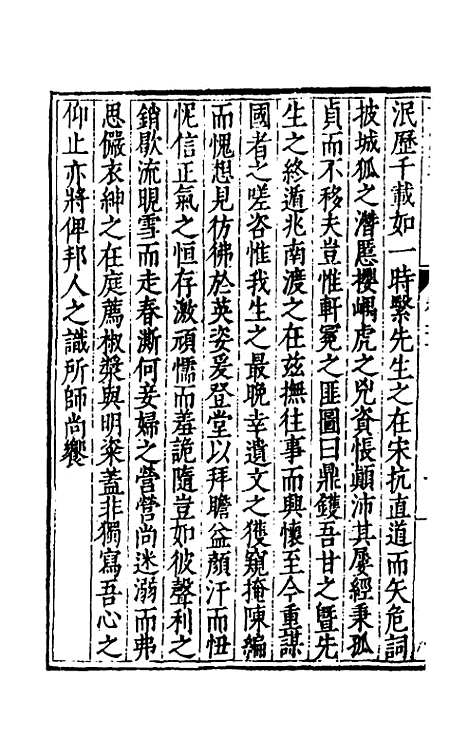 泯歷千載如一時緊先生之在宋抗直道而矢危詞
披城狐之潛慝攖嵎虎之兇資悵顛沛其屢經秉孤
貞而不移夫豈惟軒冕之匪圖曰鼎鑊吾甘之曁先
生之終遁兆南渡之在茲撫往事而興懷至今重謀
國者之嗟咨惟我生之最晩幸遺文之獲窺掩陳編
而愧想見彷彿於英姿爰登堂以拜瞻益顏汗而忸
怩信正氣之恒存激頑懦而羞詭隨豈如彼聲利之
銷歇流晛雪而走春澌何妾婦之營營尚迷溺而弗
思儼衣紳之在庭薦椒漿與明粢蓋非獨寫吾心之
仰止亦將俾邦人之識所師尚饗